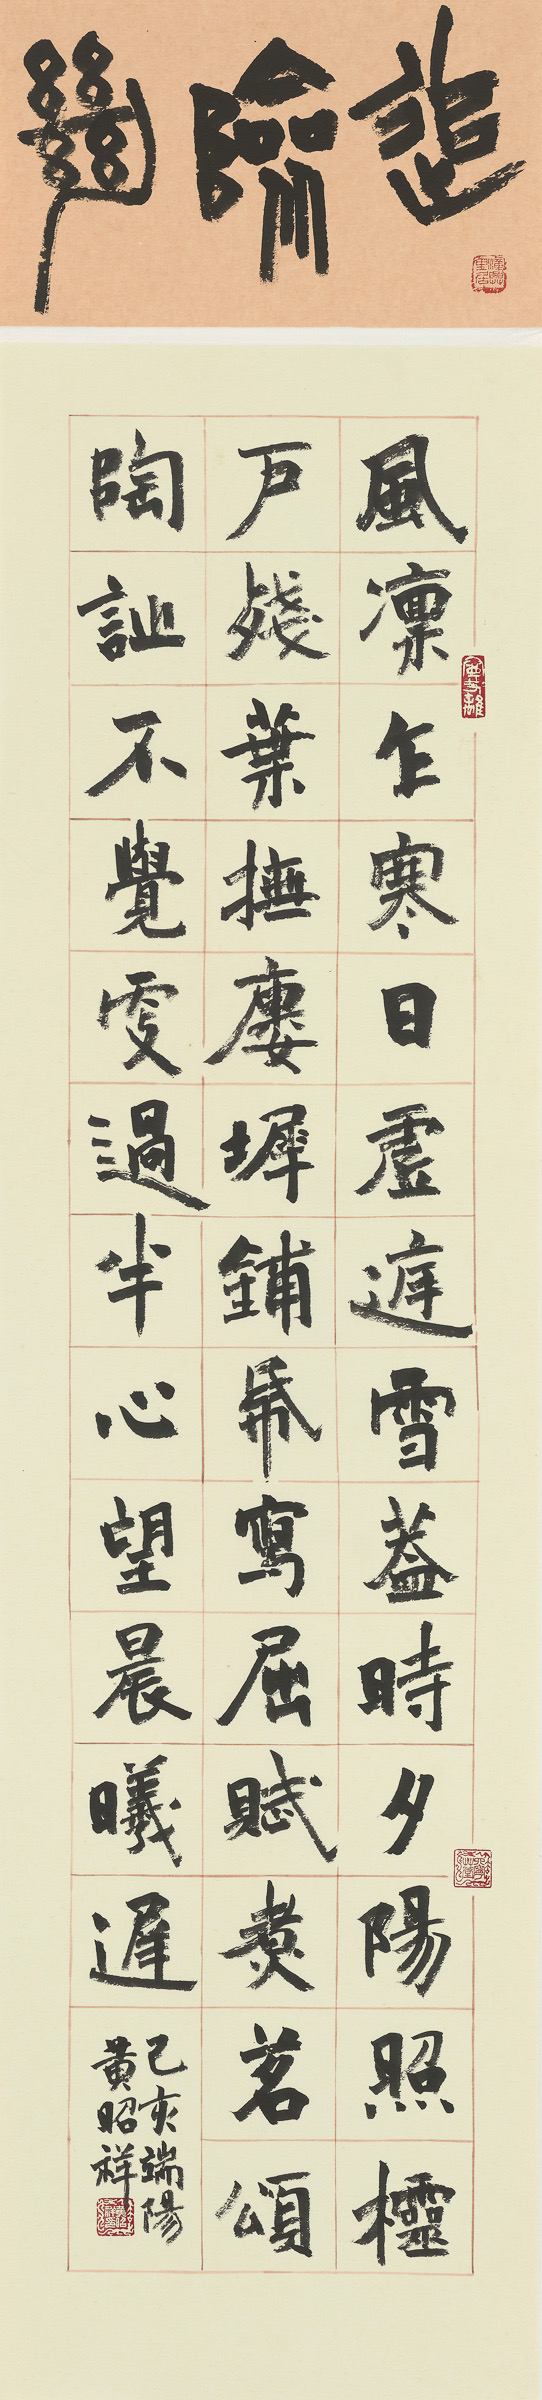 追險絕
風凜乍寒日虛庭雪蓋時夕陽照櫺
戶殘葉撫廔墀鋪帋寫屈賦煑茗頌
陶詩不覺更過半心望晨曦遲
己亥端陽
黃昭祥